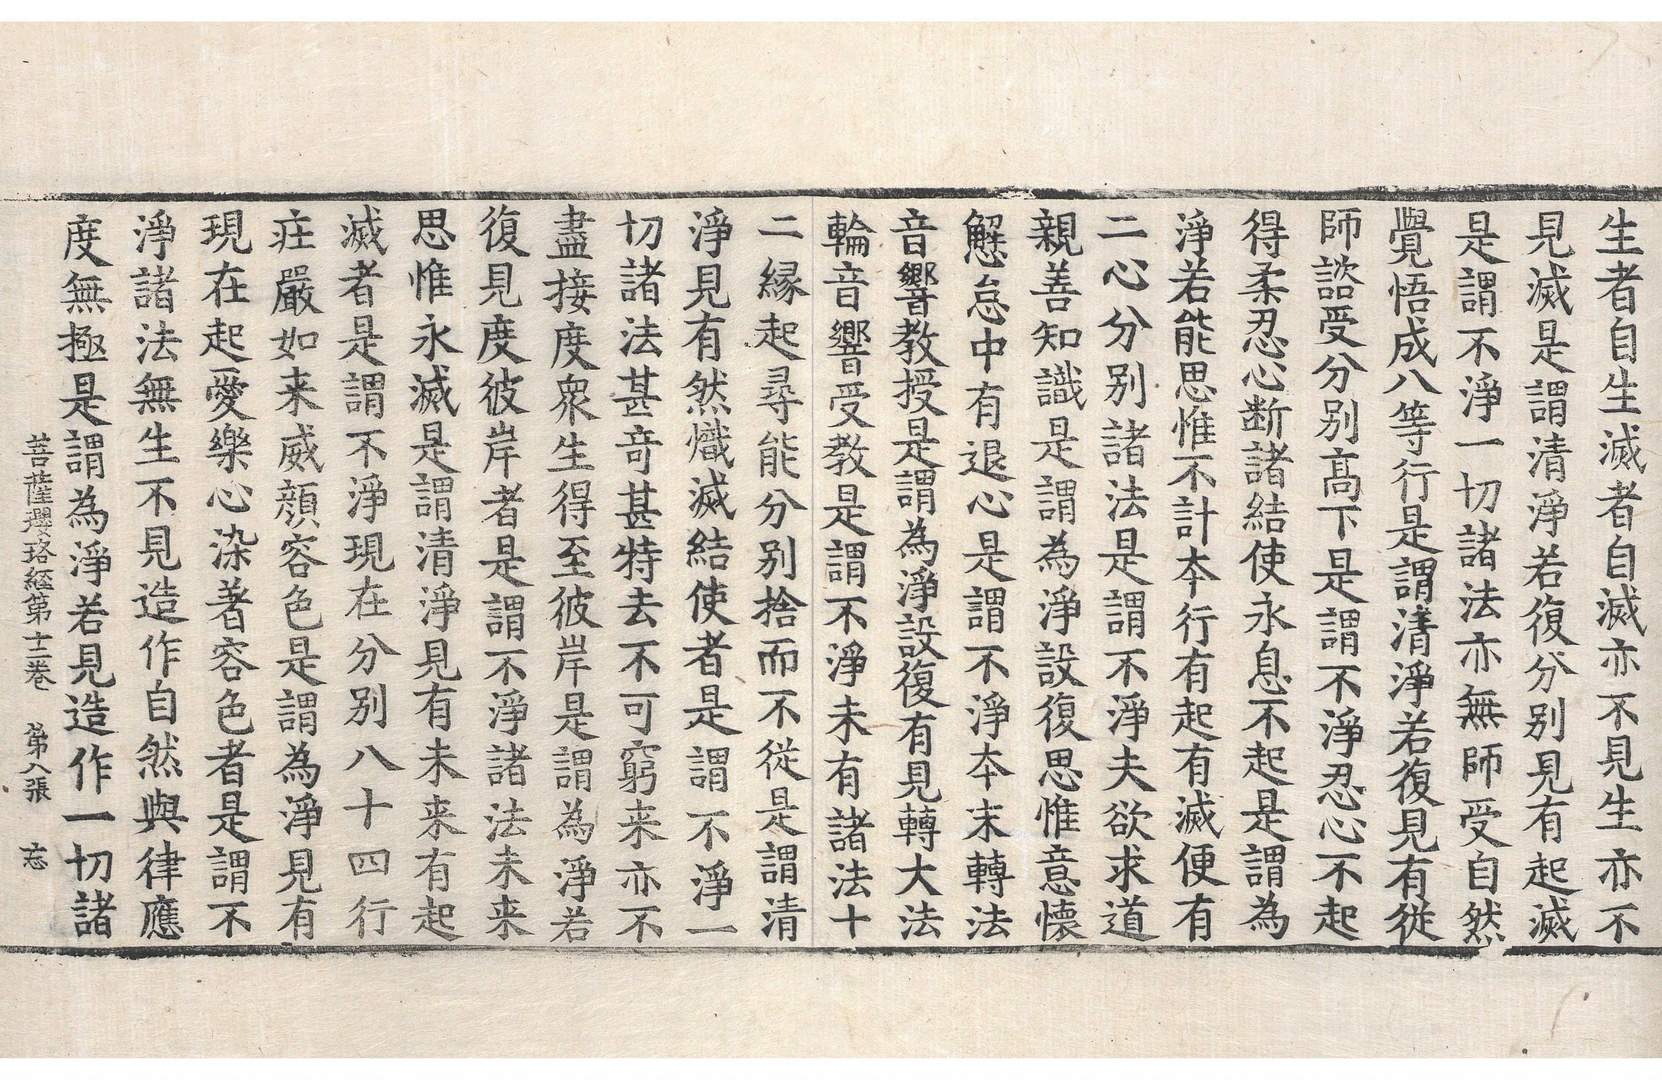 生者自生滅者自滅亦不見生亦不
見滅是謂清淨若復分別見有起滅
是謂不淨一切諸法亦無師受自然
覺悟成八等行是謂清淨若復見有從
師諮受分別高下是謂不淨忍心不起
得柔忍心断諸結使永息不起是謂為
淨若能思惟不計夲行有起有滅便有
二心分別諸法是謂不淨夫欲求道
親善知識是謂為淨設復思惟意懷
懈怠中有退心是謂不淨夲末轉法
音響教授是謂為淨設復有見轉大法
輪音響受教是謂不淨未有諸法十
二縁起尋能分別捨而不從是謂清
淨見有然熾滅結使者是謂不淨一
切諸法甚竒甚特去不可窮来亦不
盡接度衆生得至彼岸是謂為淨若
復見度彼岸者是謂不淨諸法未来
思惟永滅是謂清淨見有未来有起
滅者是謂不淨現在分別八十四行
庄嚴如来威顏容色是謂為淨見有
現在起愛樂心染著容色者是謂不
淨諸法無生不見造作自然與律應
度無極是謂為淨若見造作一切諸
菩薩瓔珞經第十二卷 第八張 忘